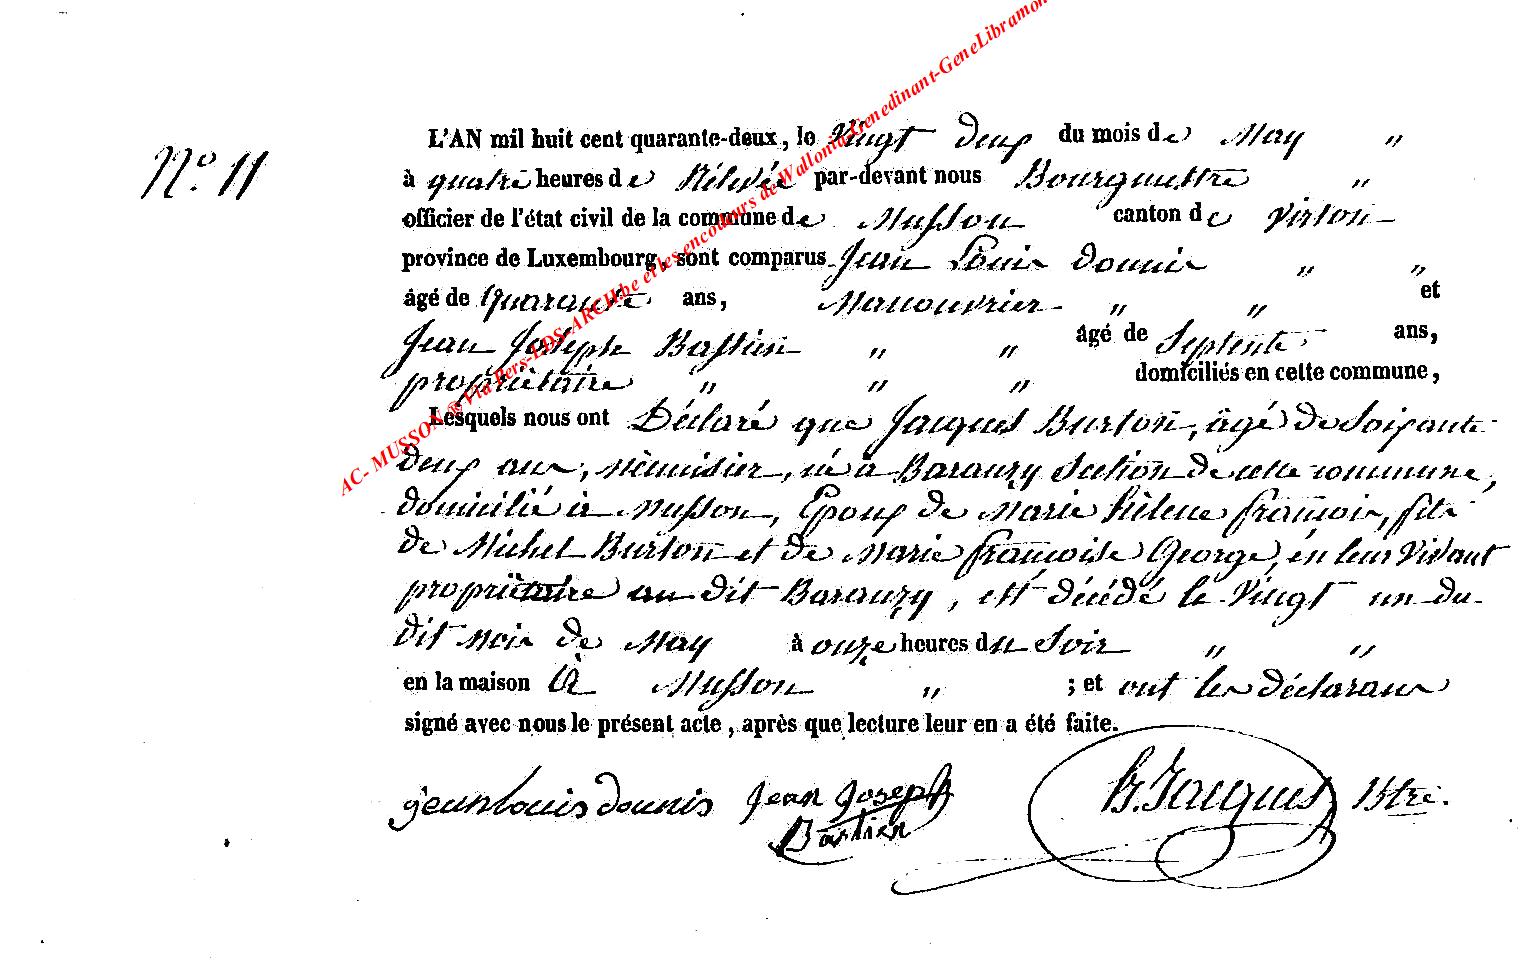 N.º 11
L'AN mil huit cent quarante-deux, le Vingt deux du mois de May "
à quatre heures de Rélevée par-devant nous Bourguemtre "
officier de l'état civil de la commune de Musson canton de Virton
province de Luxembourg, sont comparus Jean Louis Dounis " "
âgé de Quarante ans, Manouvrier " " et
Jean Joseph Bastien " " âgé de Septente ans,
propriétaire " " " domiciliés en cette commune,
Lesquels nous ont Déclaré que Jacques Burton, âgé de Soixante
deux ans, né à Baranzy Section de cette commune,
domicilié à Musson, Epoux de Marie Hélene françois, fils
de Michel Burton et de Marie françoise George, en leur vivant
propriétaire au dit Baranzy, est décédé le Vingt un du
dit mois de May à onze heures du Soir " "
en la maison à Musson " ; et ont les déclarans
signé avec nous le présent acte, après que lecture leur en a été faite.
jean louis dounis Jean Joseph Bastien H. Jacques Btre.
AC- MUSSON ® Via Pers-LDS-ARCH.be et les encodeurs de Wallonia-Genedinant-GeneLibramon